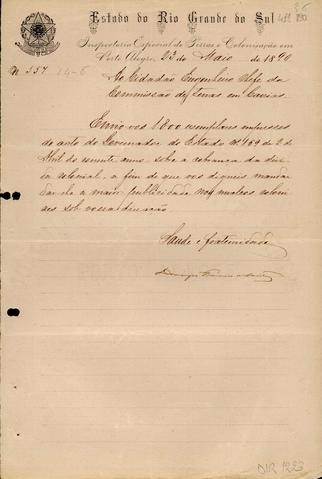 Estado do Rio Grande do Sul
Inspectoria Especial de Terras e Colonisação em
Porto Alegre, 23 de Maio de 1890
N. 357
Ao Cidadão Engenheiro Chefe da
Commissão de terras em Caxias.
Envio-vos 1.800 exemplares impressos
do acto do Governador do Estado nº 189 de 2 de
Abril do corrente anno sobre a cobrança da divi
da colonial, a fim de que vos digneis mandar
dar-lhe a maior publicidade nos nucleos coloni
aes sob vossa direcção.
Saude e fraternidade
DIR 1223